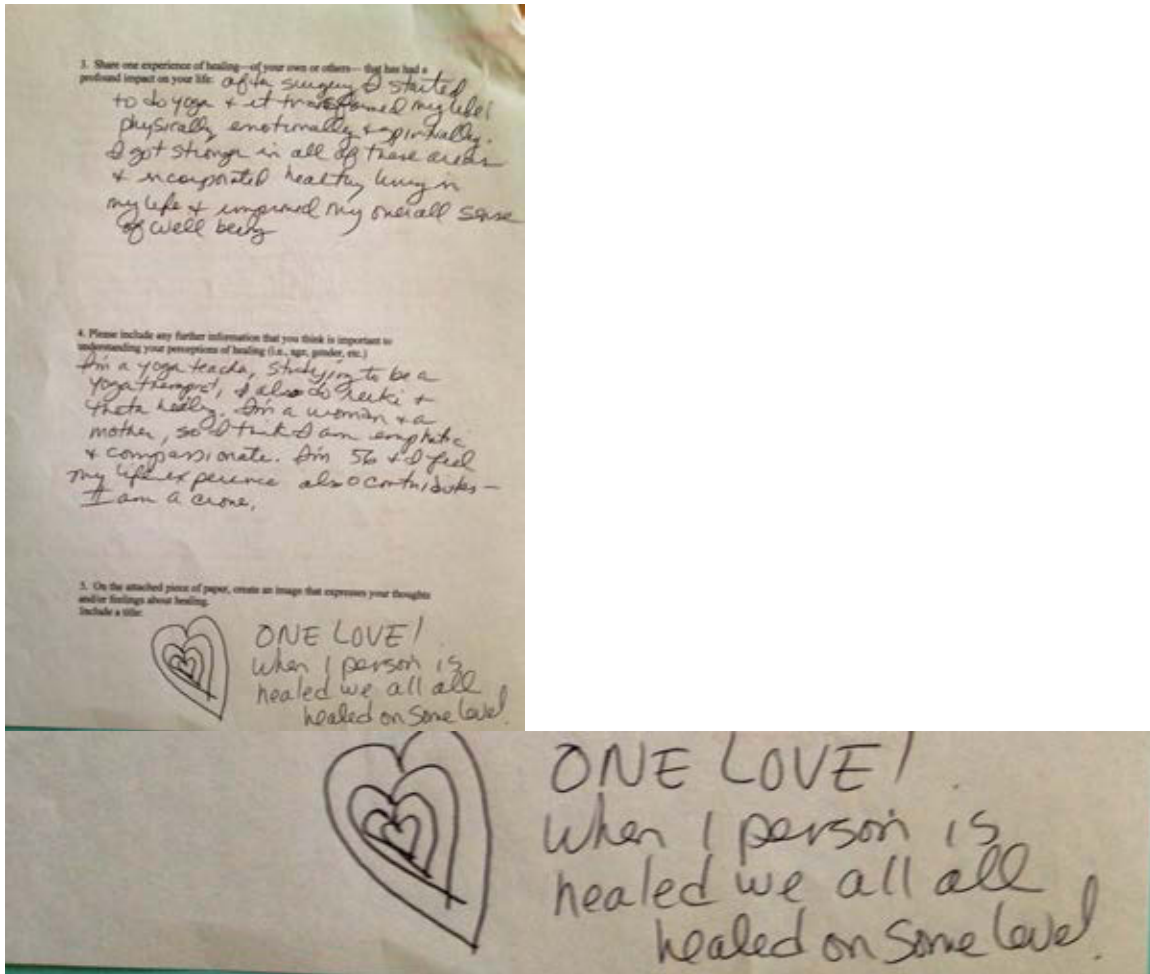 3. Share one experience of healing—of your own or others—that has had a
profound impact on your life. after surgery I started
to do yoga & it transformed my life!
physically, emotionally & spiritually.
I got stronger in all of these areas
& incorporated healthy living in
my life & improved my overall sense
of well being
4. Please include any further information that you think is important to
understanding your perceptions of healing (i.e., age, gender, etc.)
I'm a yoga teacher, studying to be a
yoga therapist, I also do reiki &
theta healing. I'm a woman & a
mother, so I think I am emphatic
& compassionate. I'm 56 & I feel
my life experience also contributes —
I am a crone.
5. On the attached piece of paper, create an image that expresses your thoughts
and/or feelings about healing.
Include a title:
ONE LOVE!
when 1 person is
healed we all all
healed on some level.
ONE LOVE!
when 1 person is
healed we all all
healed on some level.